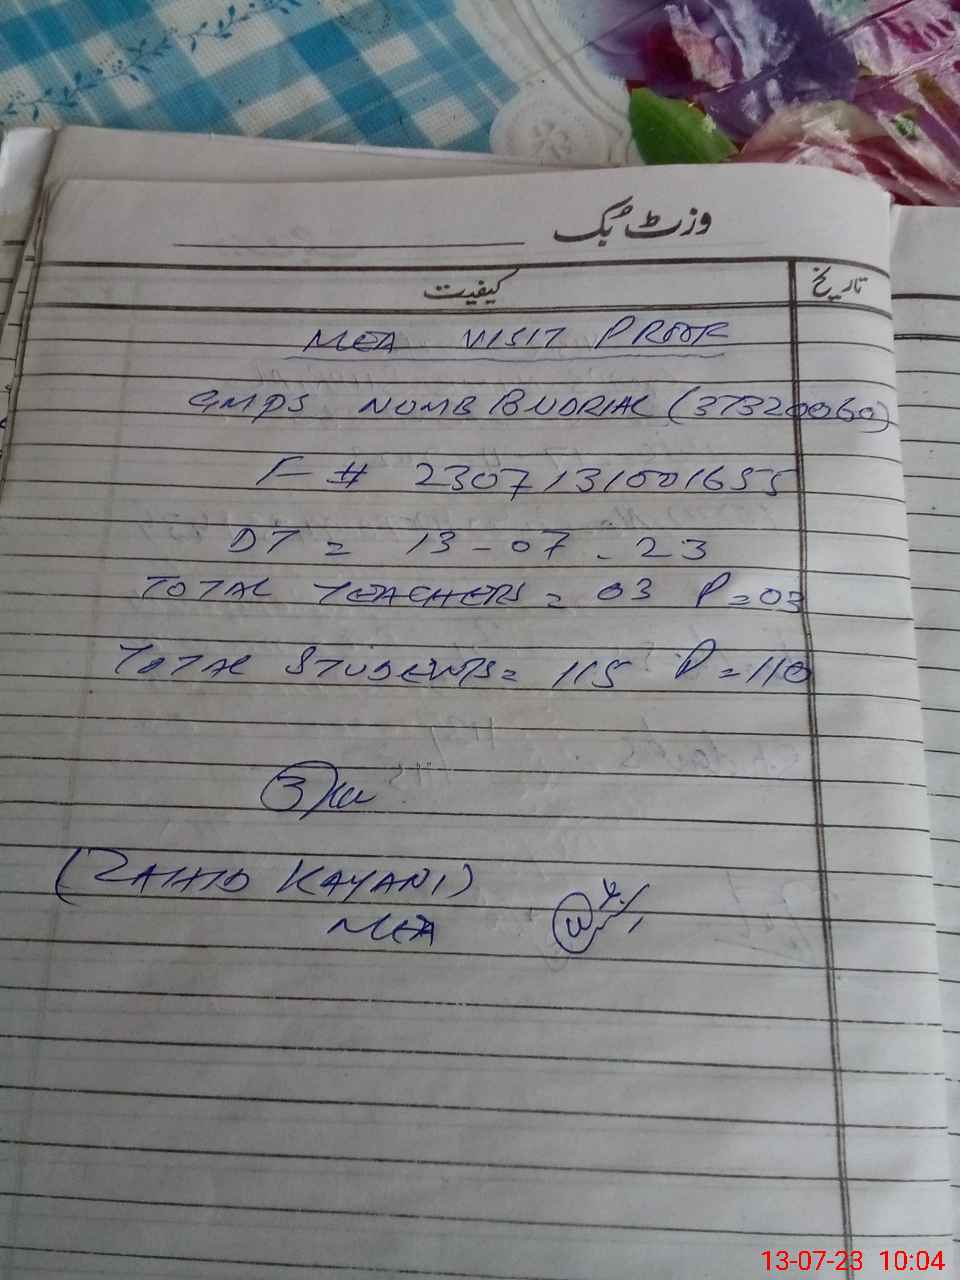 وزٹ بُک
کیفیت تاریخ
MEA VISIT PROOF
GMPS NUMB BUDRIAL (37320060)
F # 2307131001655
DT = 13-07-23
TOTAL TEACHERS = 03 P=03
TOTAL STUDENTS = 115 P=110
(ZAHID KAYANI)
MEA
13-07-23 10:04